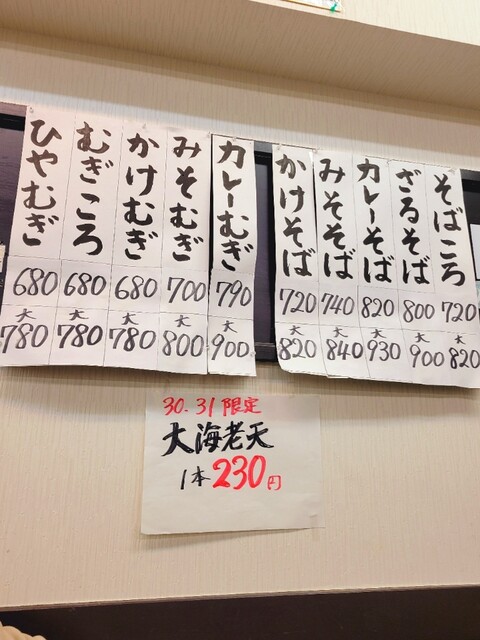 そばころ
720
大
820
ざるそば
800
大
900
カレーそば
820
大
930
みそそば
740
大
840
かけそば
720
大
820
カレーむぎ
790
大
900
みそむぎ
700
大
800
かけむぎ
680
大
780
むぎころ
680
大
780
ひやむぎ
680
大
780
30.31限定
大海老天
1本230円